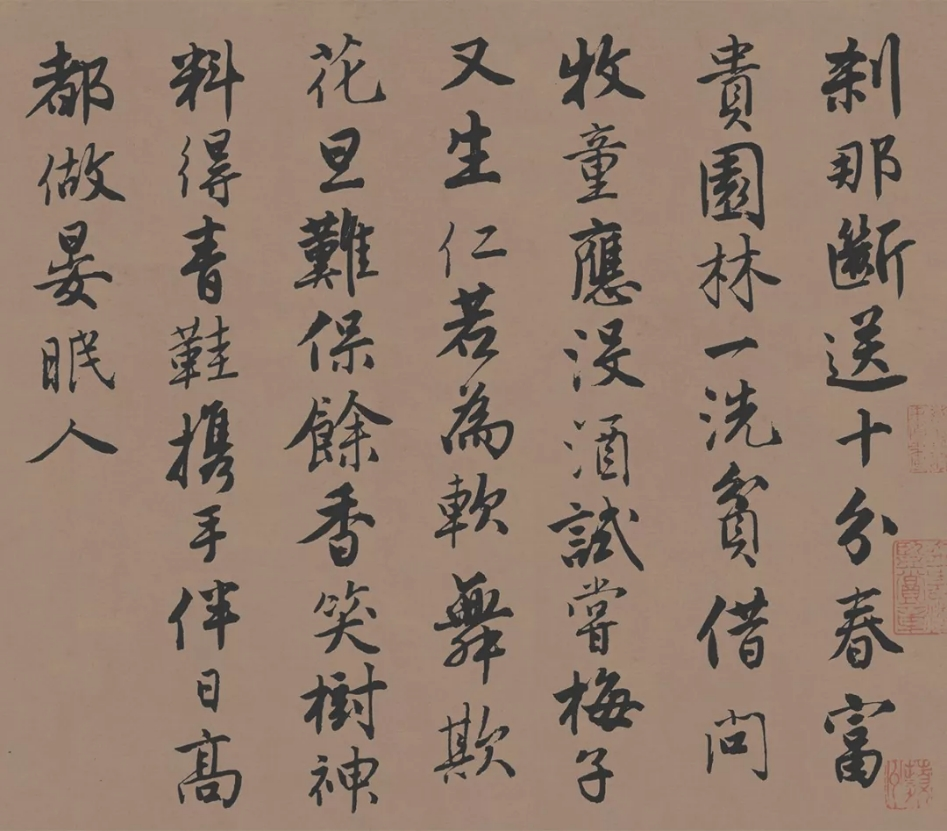 刹那斷送十分春富
貴園林一洗貧借問
牧童應沒酒試嘗梅子
又生仁若為軟舞欺
花旦難保餘香笑樹神
料得青鞋攜手伴日高
都做晏眠人